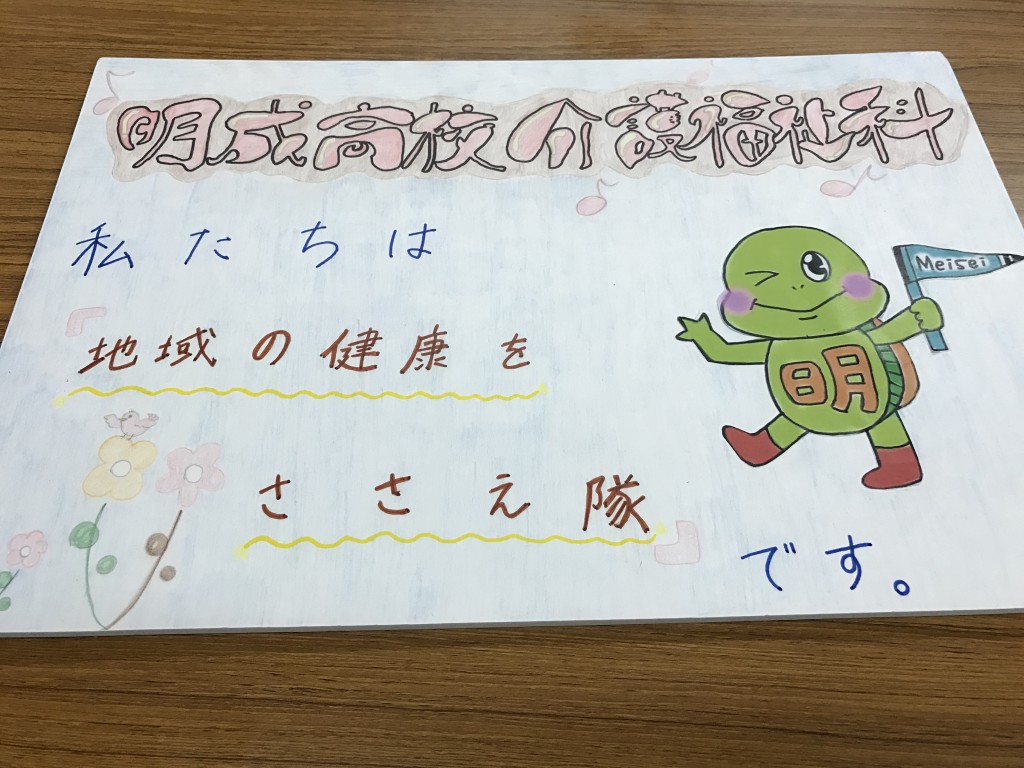 明成高校介護福祉科
私たちは
「地域の健康を
ささえ隊」
です。
Meisei
明